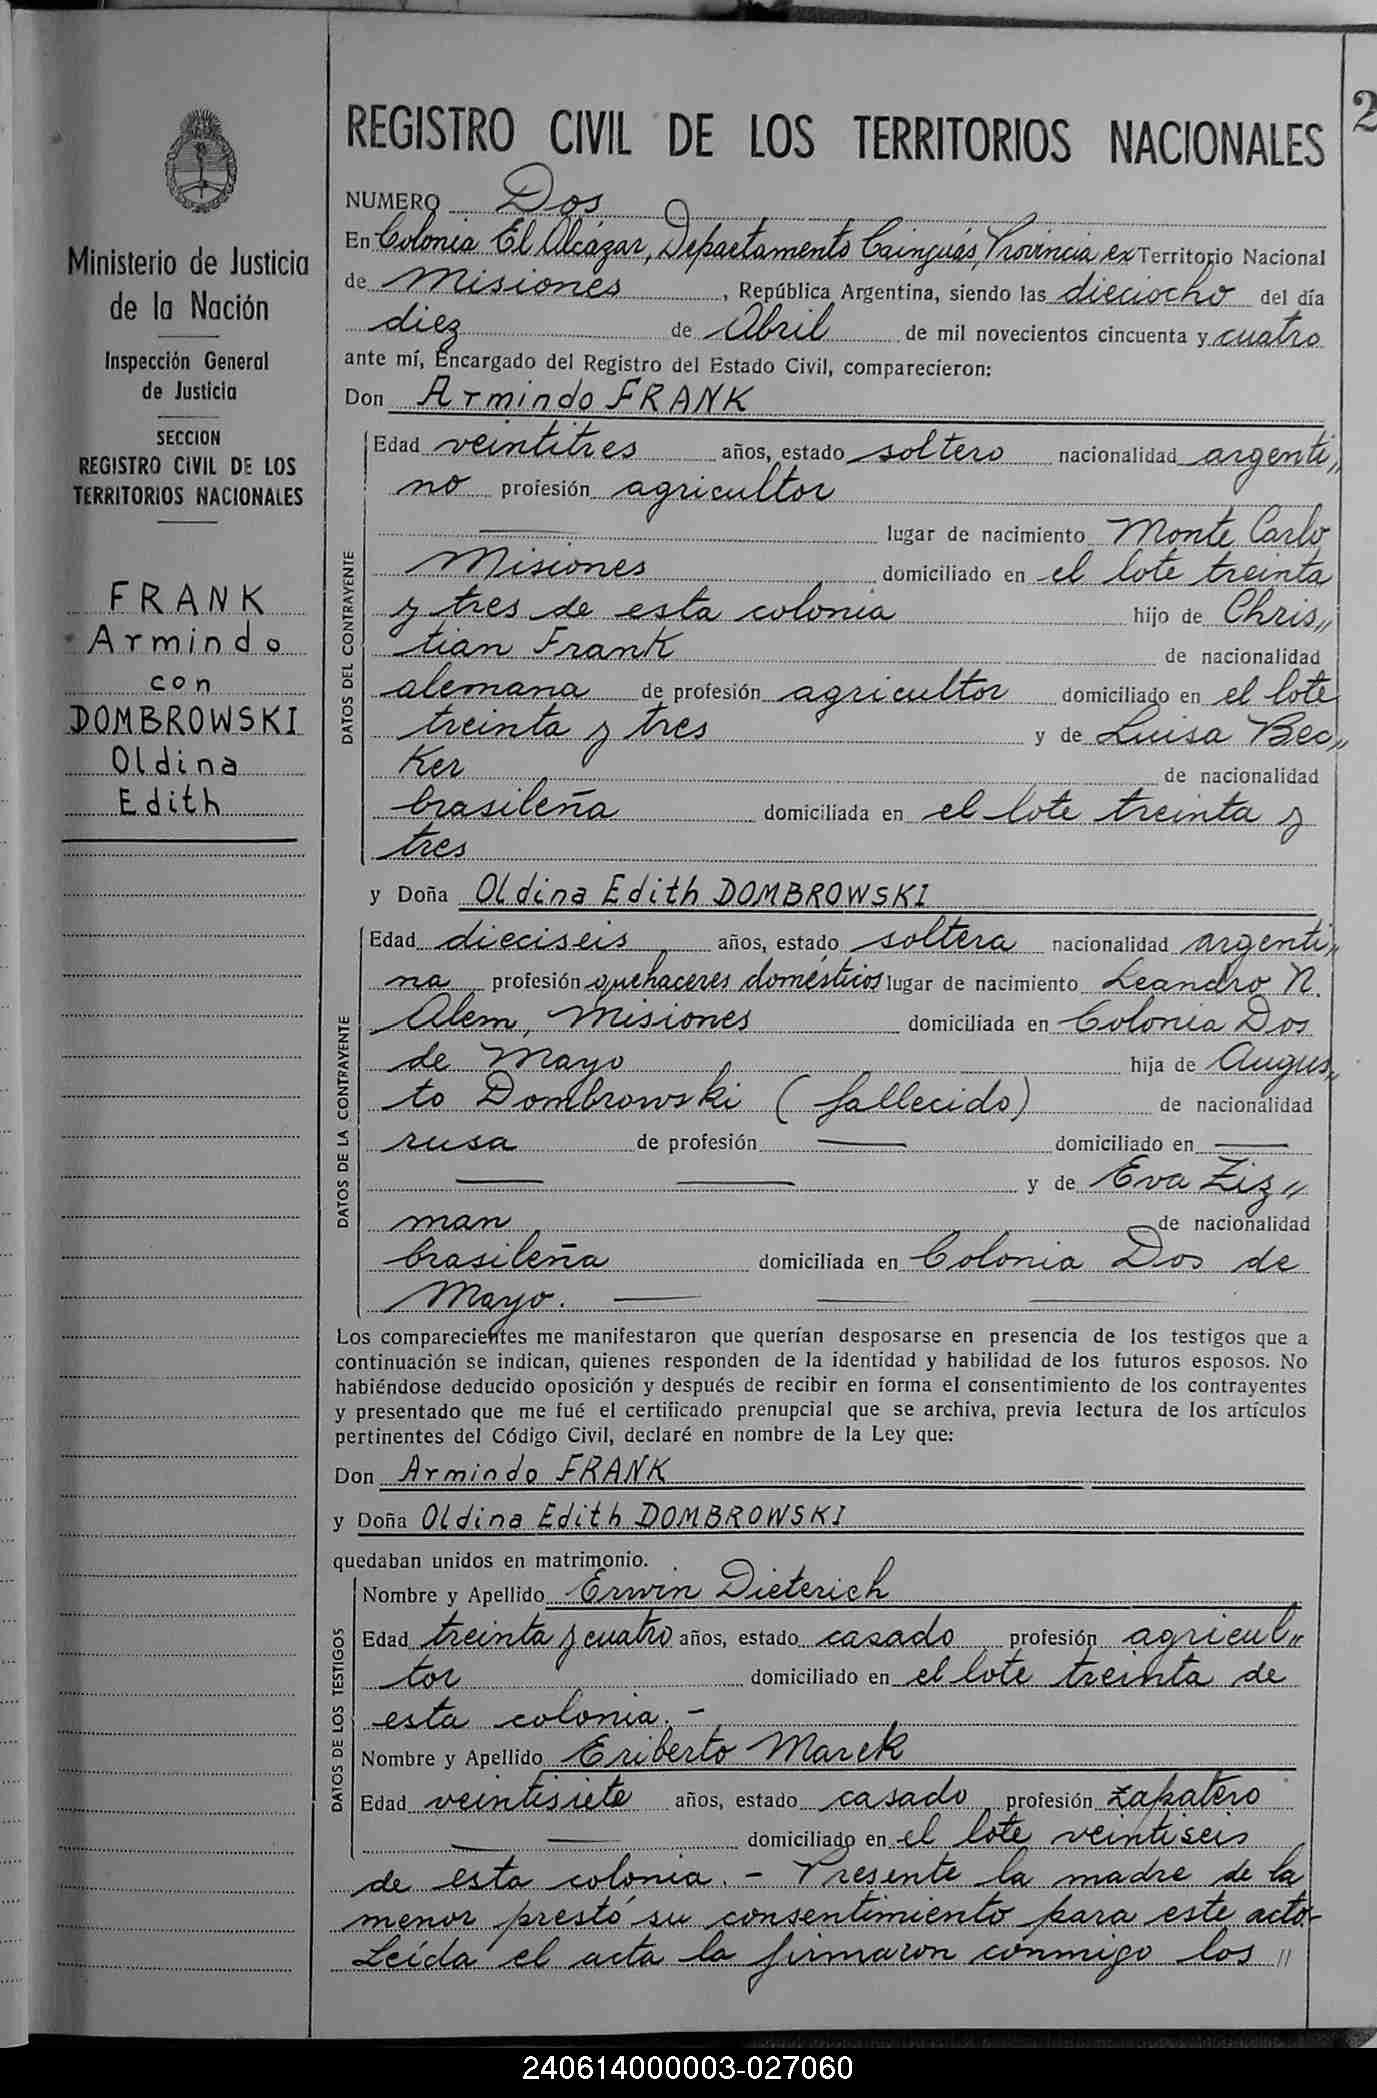 2
Ministerio de Justicia
de la Nación
Inspección General
de Justicia
SECCION
REGISTRO CIVIL DE LOS
TERRITORIOS NACIONALES
FRANK
Armindo
con
DOMBROWSKI
Oldina
Edith
REGISTRO CIVIL DE LOS TERRITORIOS NACIONALES
NUMERO Dos
En Colonia El Alcázar, Departamento Cainguás, Provincia ex Territorio Nacional
de Misiones, República Argentina, siendo las dieciocho del día
diez de Abril de mil novecientos cincuenta y cuatro
ante mí, Encargado del Registro del Estado Civil, comparecieron:
Don Armindo FRANK
DATOS DEL CONTRAYENTE
Edad veintitres años, estado soltero nacionalidad argenti„
no profesión agricultor
lugar de nacimiento Monte Carlo
Misiones domiciliado en el lote treinta
y tres de esta colonia hijo de Chris„
tian Frank de nacionalidad
alemana de profesión agricultor domiciliado en el lote
treinta y tres y de Luisa Bec„
Ker de nacionalidad
brasileña domiciliada en el lote treinta y
tres
y Doña Oldina Edith DOMBROWSKI
DATOS DE LA CONTRAYENTE
Edad dieciseis años, estado soltera nacionalidad argenti„
na profesión quehaceres domésticos lugar de nacimiento Leandro N.
Alem, Misiones domiciliada en Colonia Dos
de Mayo hija de Augus„
to Dombrowski (fallecido) de nacionalidad
rusa de profesión — domiciliado en —
— — y de Eva Ziz„
man de nacionalidad
brasileña domiciliada en Colonia Dos de
Mayo. — — —
Los comparecientes me manifestaron que querían desposarse en presencia de los testigos que a
continuación se indican, quienes responden de la identidad y habilidad de los futuros esposos. No
habiéndose deducido oposición y después de recibir en forma el consentimiento de los contrayentes
y presentado que me fué el certificado prenupcial que se archiva, previa lectura de los artículos
pertinentes del Código Civil, declaré en nombre de la Ley que:
Don Armindo FRANK
y Doña Oldina Edith DOMBROWSKI
quedaban unidos en matrimonio.
DATOS DE LOS TESTIGOS
Nombre y Apellido Erwin Dieterich
Edad treinta y cuatro años, estado casado profesión agricul„
tor domiciliado en el lote treinta de
esta colonia. -
Nombre y Apellido Eriberto Marek
Edad veintisiete años, estado casado profesión zapatero
— — domiciliado en el lote veintiseis
de esta colonia. - Presente la madre de la
menor prestó su consentimiento para este acto-
Leída el acta la firmaron conmigo los „
240614000003-027060